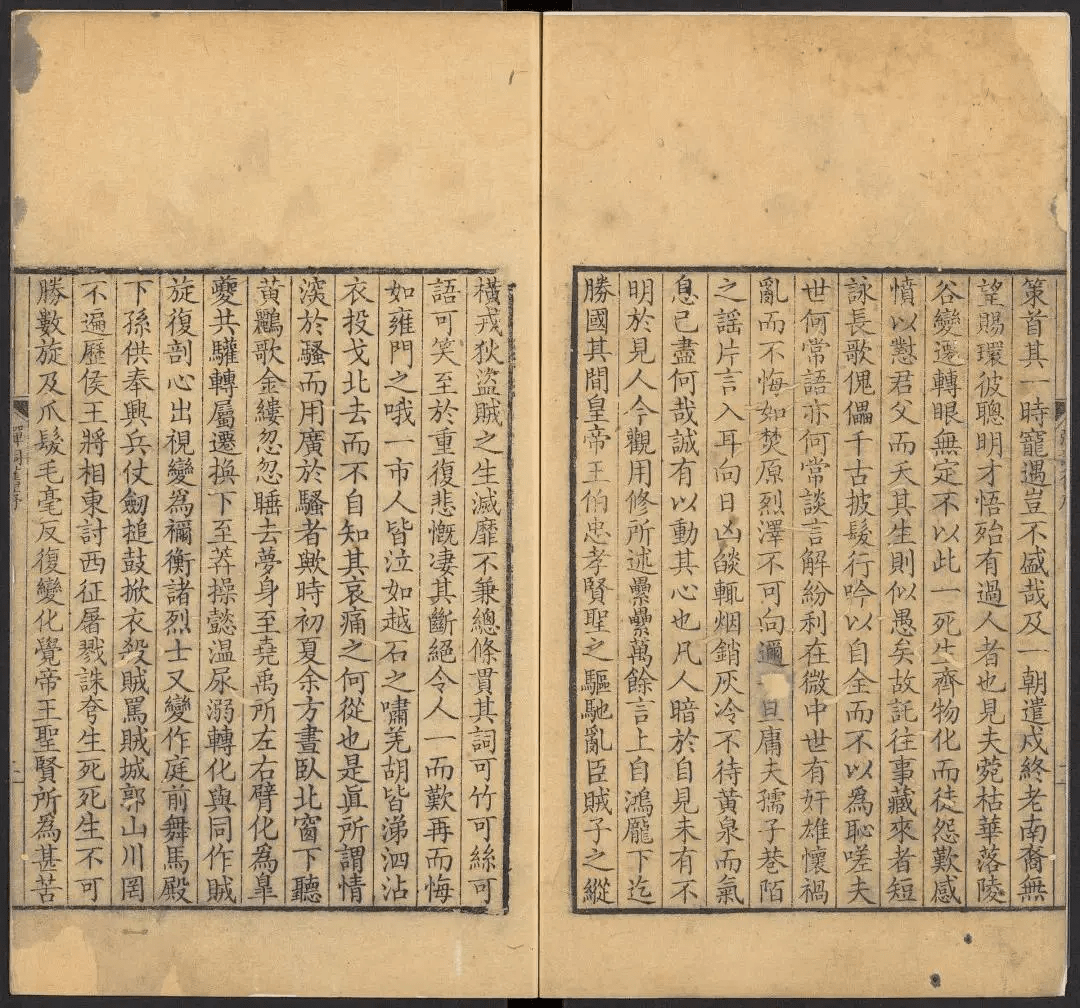 策首其一時寵遇豈不盛哉及一朝遣戍終老南裔無
望賜環彼聰明才悟殆有過人者也見夫菀枯華落陵
谷變遷轉眼無定不以此一死生齊物化而徒怨歎感
憤以懟君父而夭其生則似愚矣故託往事藏來者短
詠長歌傀儡千古披髮行吟以自全而不以為恥嗟夫
世何常語亦何常談言解紛利在微中世有奸雄懷禍
亂而不悔如焚原烈澤不可向邇且庸夫孺子巷陌
之謡片言入耳向日凶燄輒烟銷灰冷不待黃泉而氣
息已盡何哉誠有以動其心也凡人暗於自見未有不
明於見人今觀用修所述纍纍萬餘言上自鴻龐下迄
勝國其間皇帝王伯忠孝賢聖之驅馳亂臣賊子之縱
橫戎狄盜賊之生滅靡不兼總條貫其詞可竹可絲可
語可笑至於重復悲慨凄其斷絕令人一而歎再而悔
如雍門之哦一市人皆泣如越石之嘯羌胡皆涕泗沾
衣投戈北去而不自知其哀痛之何從也是眞所謂情
深於騷而用廣於騷者歟時初夏余方晝臥北窗下聽
黃鸝歌金縷忽忽睡去夢身至堯禹所左右臂化為臯
夔共驩轉屬遷換下至莽操懿温尿溺轉化與同作賊
旋復剖心出視變為禰衡諸烈士又變作庭前舞馬殿
下孫供奉興兵仗劒搥鼓掀衣殺賊罵賊城郭山川罔
不遍歷侯王將相東討西征屠戮誅夸生死死生不可
勝數旋及爪髮毛毫反復變化覺帝王聖賢所為甚苦